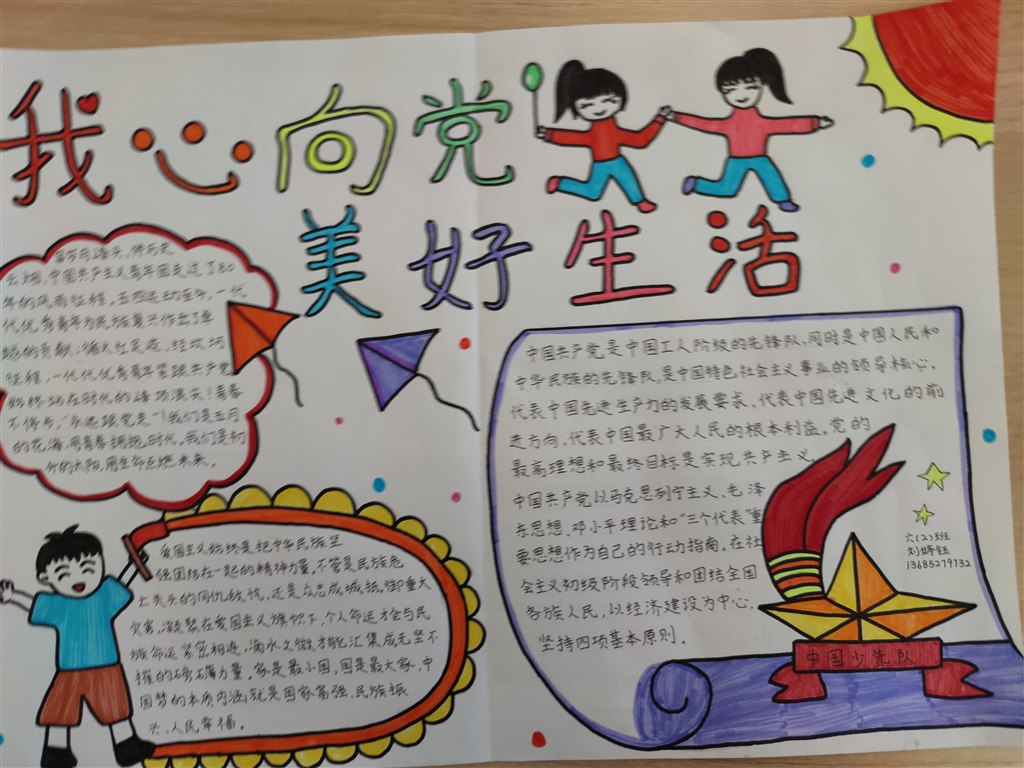 我心向党
美好生活
岁月从头,伟历史
长烟,中国共产主义青年团走过了80
年的风雨征程。五四运动至今,一代
代优秀青年为民族复兴作出了卓
越的贡献,
征程,一代代优秀青年紧跟共产党
始终站在时代的
不停步,“永远跟党走”!我们是五月
的花海,用青春拥抱时代,我们是初
升的太阳,用生命点燃未来。
爱国主义始终是把中华民族坚
强团结在一起的精神力量,不管是民族危
亡关头的同仇敌忾,还是众志成城抵御重大
灾害,凝聚在爱国主义旗帜下,个人命运才会与民
族命运紧密相连,滴水之微才能汇集成无坚不
摧的磅礴力量。家是最小国,国是最大家,中
国梦的本质内涵,就是国家富强、民族振
兴、人民幸福。
中国共产党是中国工人阶级的先锋队,同时是中国人民和
中华民族的先锋队,是中国特色社会主义事业的领导核心,
代表中国先进生产力的发展要求,代表中国先进文化的前
进方向,代表中国最广大人民的根本利益。党的
最高理想和最终目标是实现共产主义。
中国共产党以马克思列宁主义、毛泽
东思想、邓小平理论和“三个代表”重
要思想作为自己的行动指南。在社
会主义初级阶段领导和团结全国
各族人民,以经济建设为中心,
坚持四项基本原则。
六(2)班
刘婷钰
13685279732
中国少先队